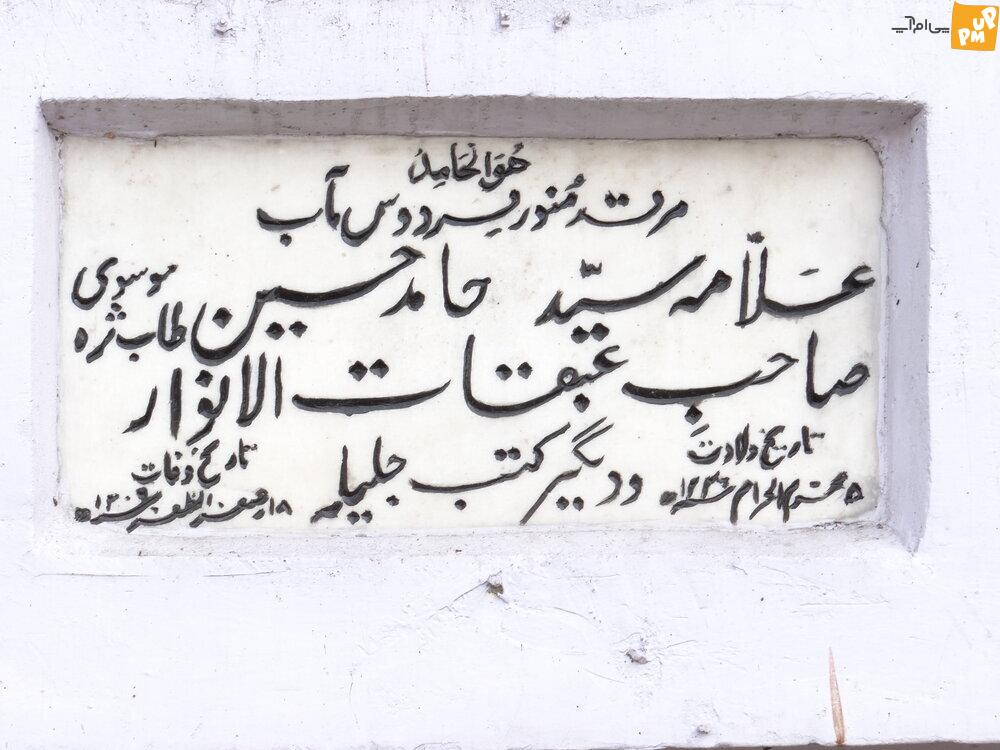 پی‌ام‌آپ
UP PM
هُوَ الحَامِدُ
مرقد مُنور فردوس مآب
علّامہ سیّد حامد حسین موسوی طاب ثرہ
صاحبِ عبقات الانوار
ودیگر کتب جلیلہ
تاریخ ولادت
۵ محرّم الحرام ۱۲۴۶ھ
تاریخ وفات
۱۸ صفر المظفر ۱۳۰۶ھ